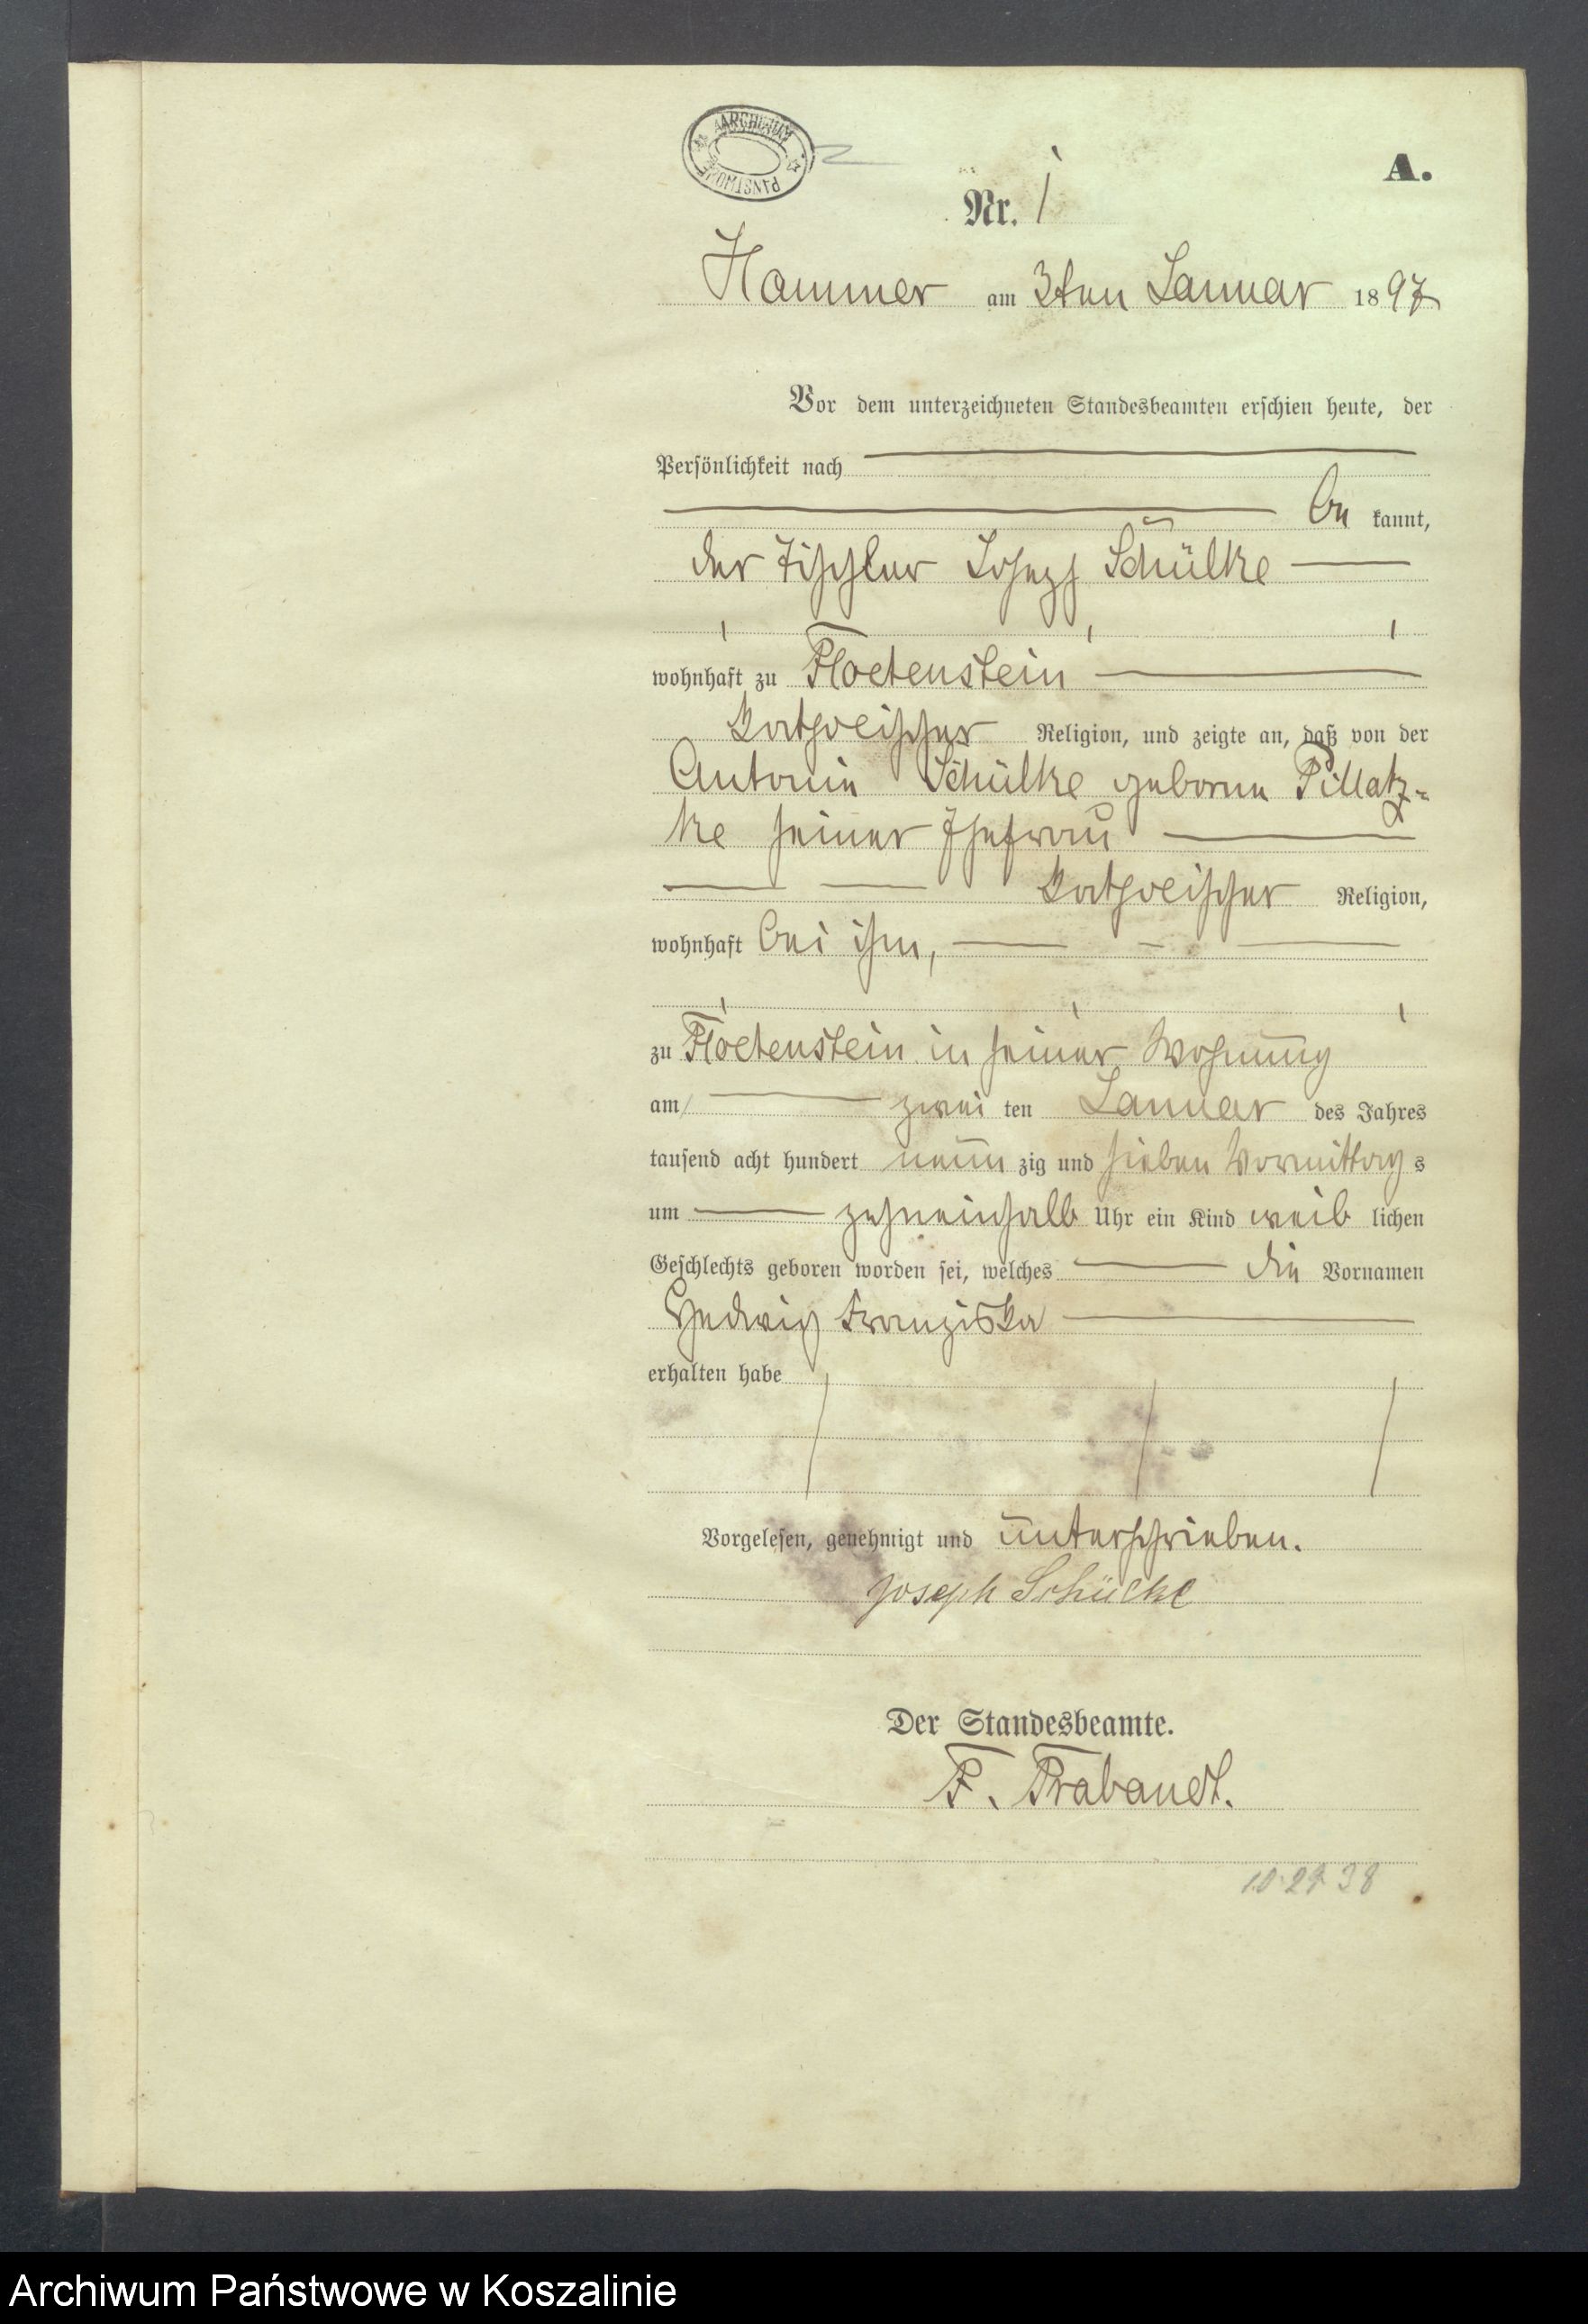 ARCHIWUM PAŃSTWOWE
A.
Nr. 1
Hammer am 3ten Januar 1897
Vor dem unterzeichneten Standesbeamten erschien heute, der
Persönlichkeit nach
be kannt,
der Tischler Josef Schülke
wohnhaft zu Floetenstein
katholischer Religion, und zeigte an, daß von der
Antonie Schülke geborne Pillatz-
ke seiner Ehefrau
katholischer Religion,
wohnhaft bei ihm,
zu Floetenstein in seiner Wohnung
am zwei ten Januar des Jahres
tausend acht hundert neun zig und sieben Vormittag s
um zehneinhalb Uhr ein Kind weib lichen
Geschlechts geboren worden sei, welches die Vornamen
Hedwig Franziska
erhalten habe
Vorgelesen, genehmigt und unterschrieben.
Joseph Schülke
Der Standesbeamte.
F. Prabandt.
10.29 38
Archiwum Państwowe w Koszalinie